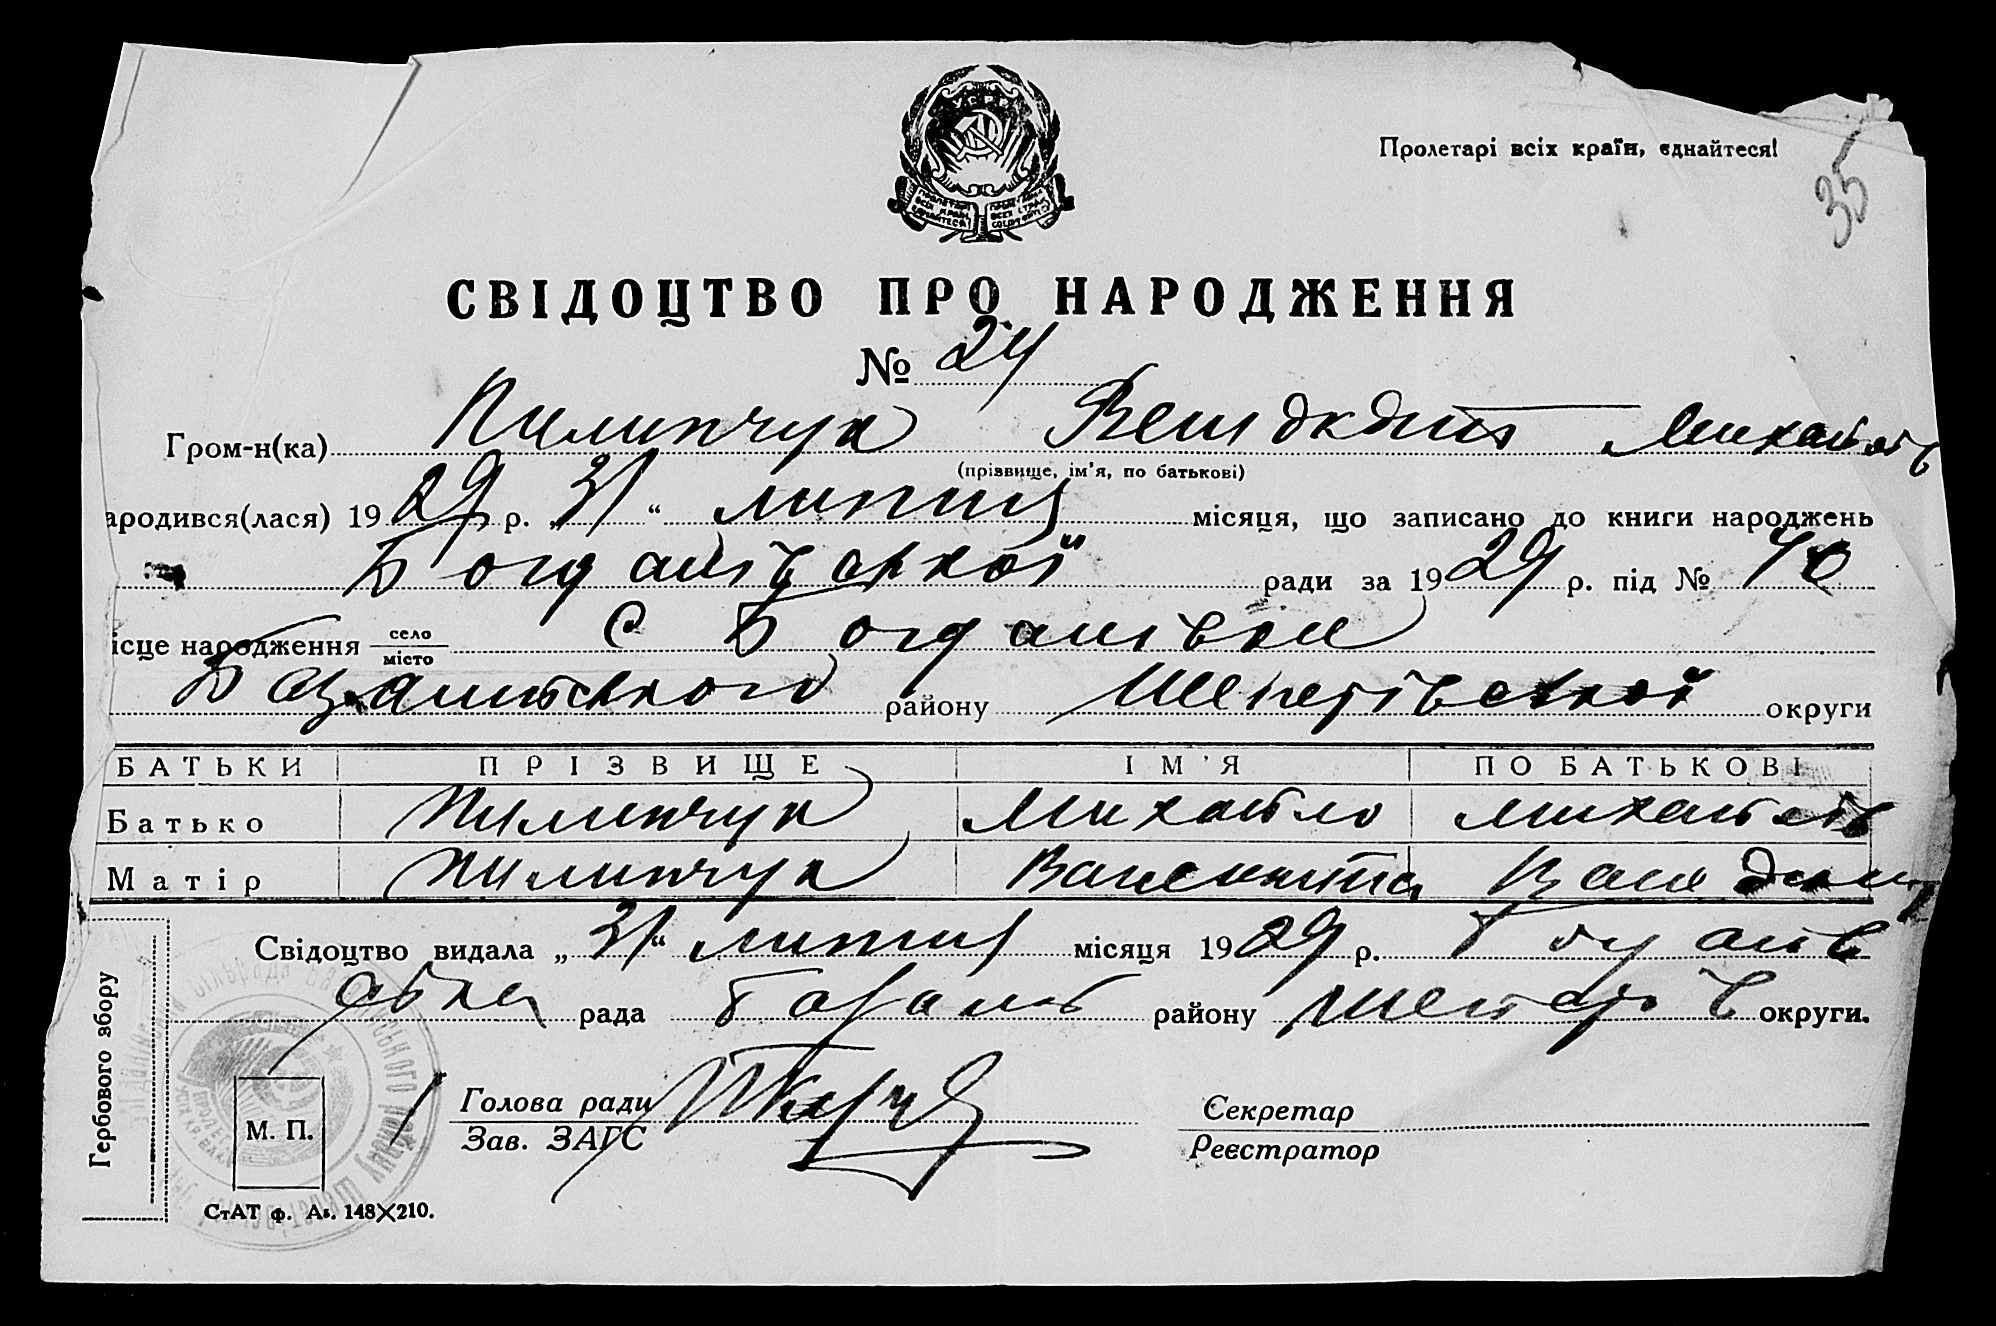 Пролетарі всіх країн, єднайтеся!
35
СВІДОЦТВО ПРО НАРОДЖЕННЯ
№ 24
Гром-н(ка) Пилипчук Венідикт Михайлів
(прізвище, ім'я, по батькові)
ародився(лася) 1929 р. „31“ липня місяця, що записано до книги народжень
Богданівської ради за 1929 р. під № 40
ісце народження село місто с Богданівка
Базалійського району Шепетівської округи
БАТЬКИ ПРІЗВИЩЕ ІМ'Я ПО БАТЬКОВІ
Батько Пилипчук Михайло Михайлів
Матір Пилипчук Валентина
Свідоцтво видала „31“ липня місяця 1929 р. Богданів
ська рада Базалій району Шепетів округи.
Гербового збору
М. П.
Голова ради
Зав. ЗАГС
Секретар
Реєстратор
СтАТ ф. А₅. 148✕210.